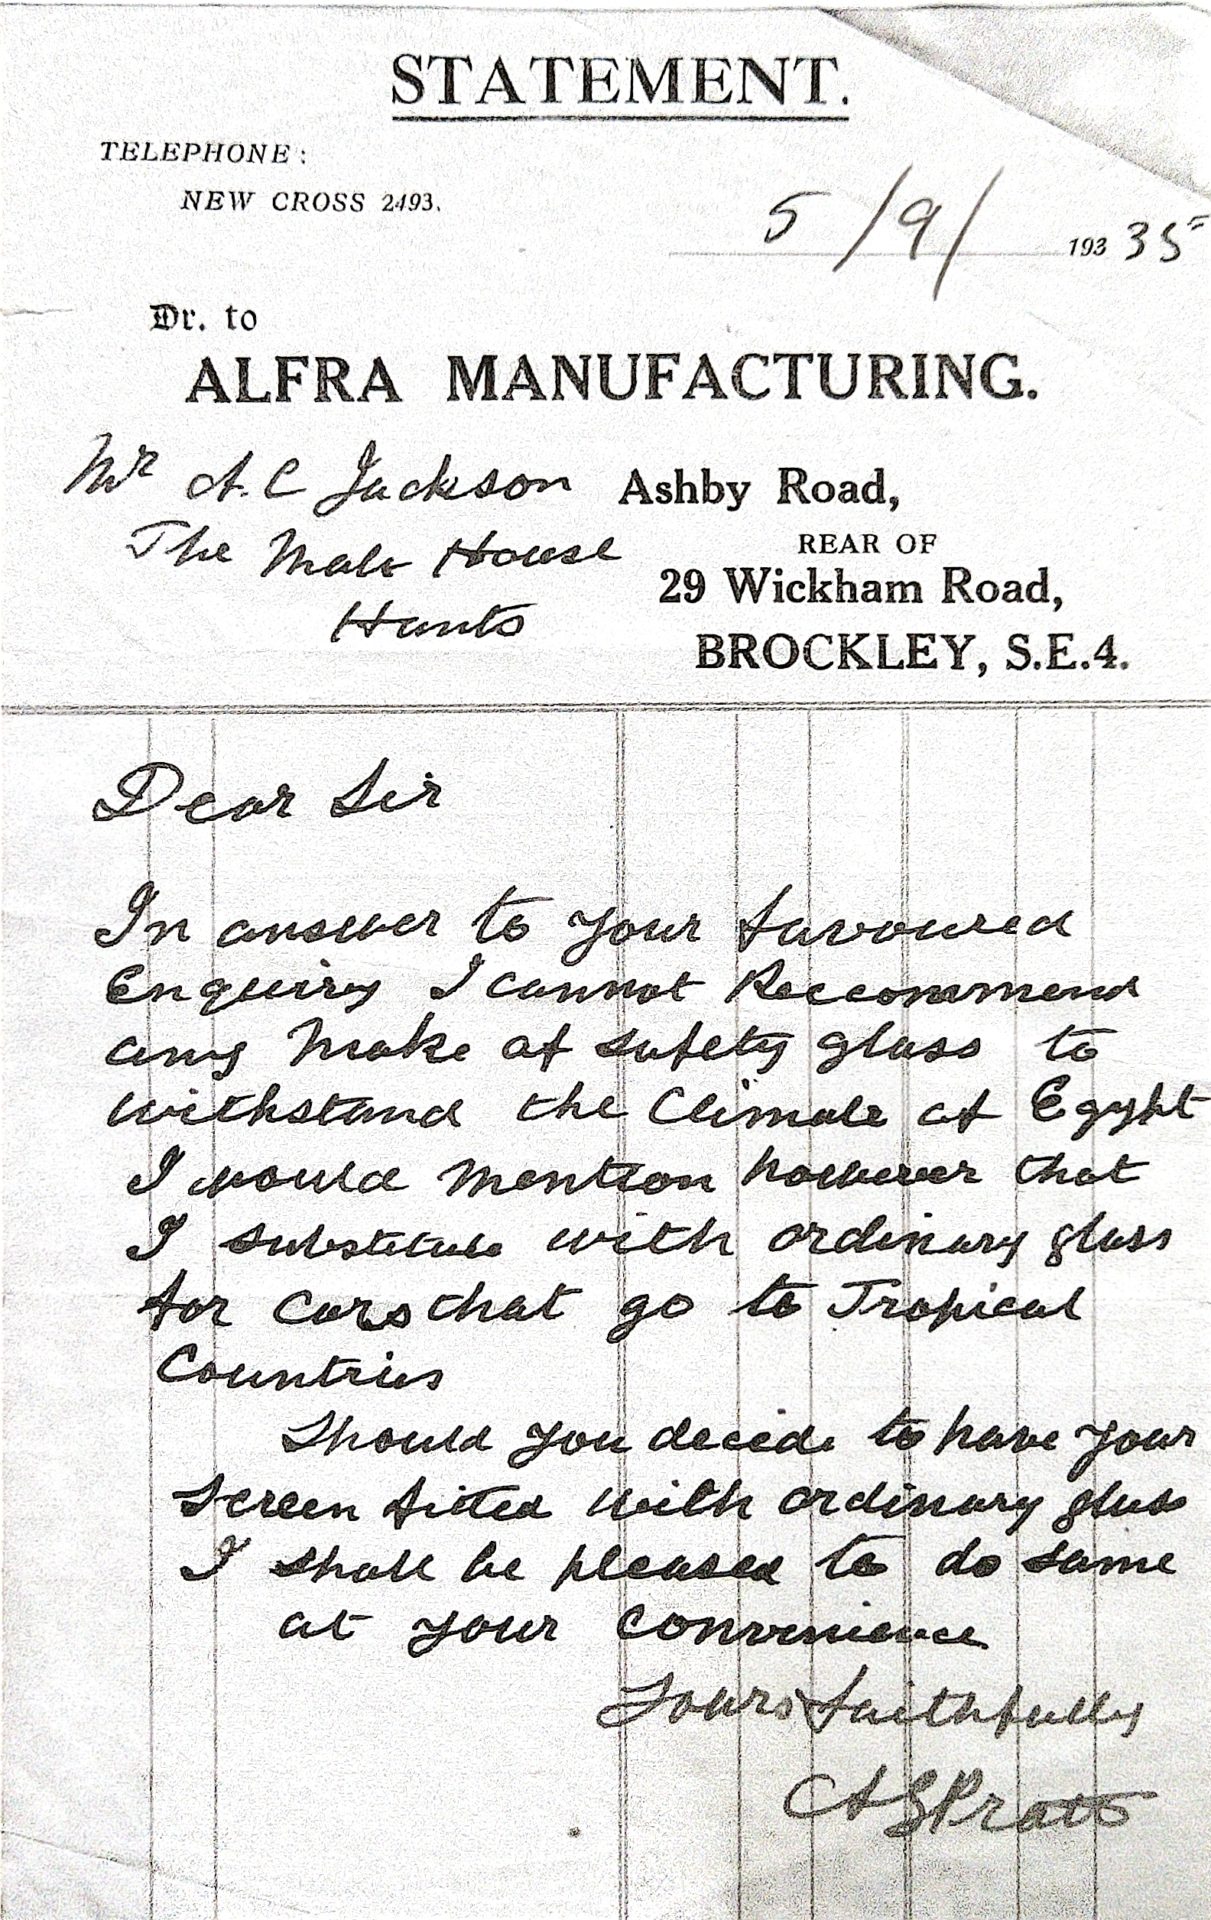 STATEMENT.
TELEPHONE:
NEW CROSS 2493.
5/9/ 193 35
Dr. to
ALFRA MANUFACTURING.
Mr A.C Jackson
Ashby Road,
The House
REAR OF
29 Wickham Road,
Hants
BROCKLEY, S.E.4.
Dear Sir
In answer to your favoured
Enquiry I cannot Reccommend
any Make of safety glass to
withstand the Climate of Egypt
I would mention however that
I substitute with ordinary glass
for Cars that go to Tropical
Countries
Should you decide to have your
Screen fitted with ordinary glass
I shall be pleased to do same
at your convenience
Yours faithfully
Pratt